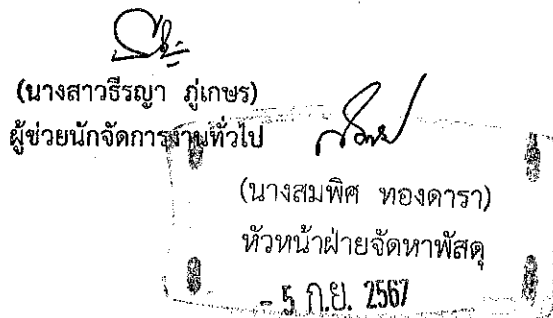 (นางสาวธีรญา ภู่เกษร)
ผู้ช่วยนักจัดการงานทั่วไป
(นางสมพิศ ทองดารา)
หัวหน้าฝ่ายจัดหาพัสดุ
- 5 ก.ย. 2567